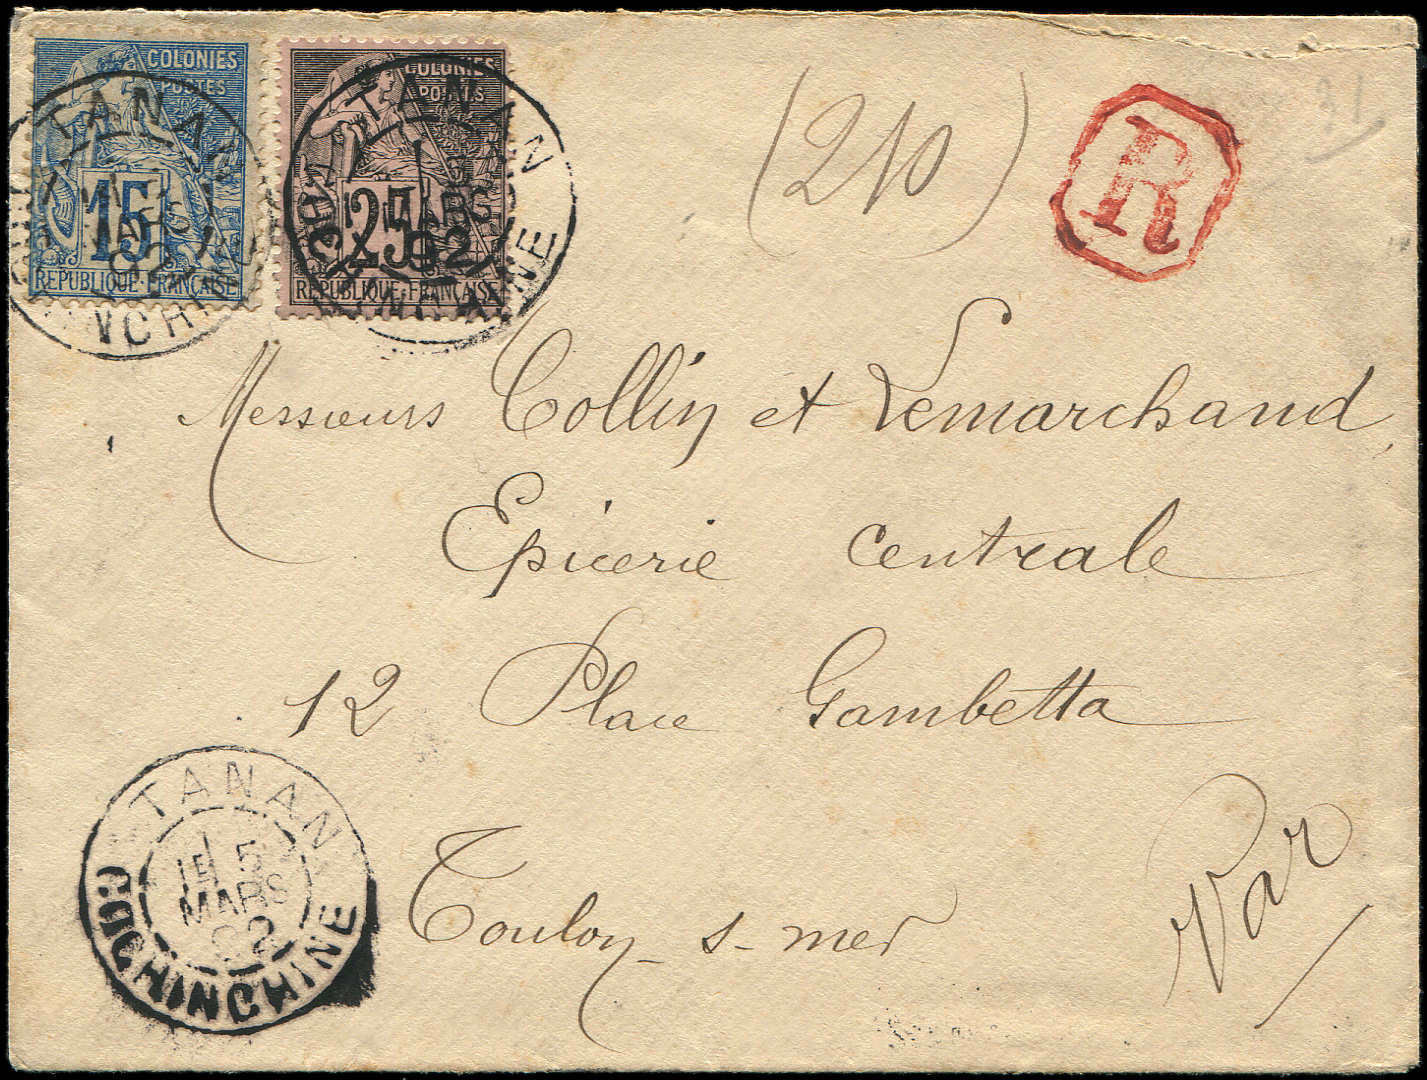 COLONIES
POSTES
15
REPUBLIQUE FRANÇAISE
COLONIES
POSTES
25
REPUBLIQUE FRANÇAISE
TANAN
MARS
92
TANAN
MARS
92
(210)
R
31
Messieurs Collin et Lemarchand,
Epicerie Centrale
12 Place Gambetta
Toulon s-mer
Var
TANAN
1E 5
MARS
92
COCHINCHINE